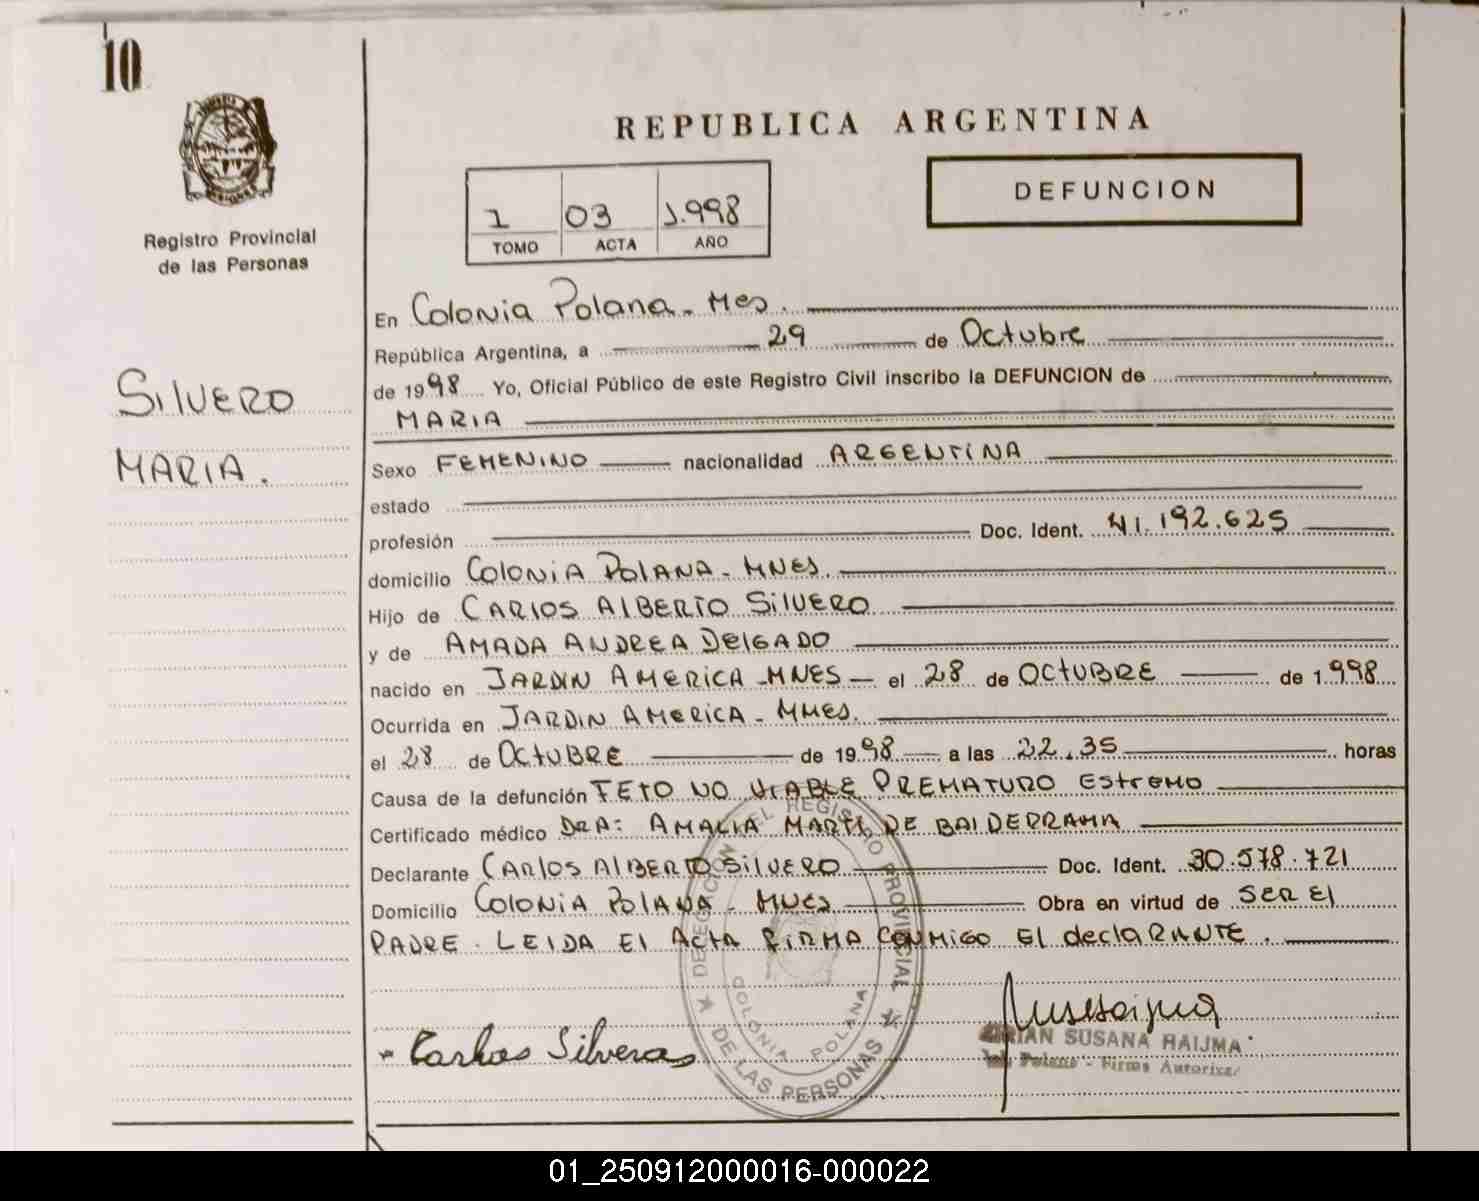 10
REPUBLICA ARGENTINA
DEFUNCION
1 03 1.998
TOMO ACTA AÑO
Registro Provincial
de las Personas
SILVERO
MARIA.
En Colonia Polana - Mes.
República Argentina, a 29 de Octubre
de 1998 Yo, Oficial Público de este Registro Civil inscribo la DEFUNCION de
MARIA
Sexo FEMENINO nacionalidad ARGENTINA
estado
profesión Doc. Ident. 41.192.625
domicilio COLONIA POLANA - MNES.
Hijo de CARLOS ALBERTO SILVERO
y de AMADA ANDREA DELGADO
nacido en JARDIN AMERICA - MNES - el 28 de OCTUBRE de 1.998
Ocurrida en JARDIN AMERICA - MNES.
el 28 de OCTUBRE de 1998 a las 22.35 horas
Causa de la defunción FETO NO VIABLE PREMATURO ESTREMO
Certificado médico DRA: AMALIA MARTI DE BALDERRAMA
Declarante CARLOS ALBERTO SILVERO Doc. Ident. 30.578.721
Domicilio COLONIA POLANA - MNES Obra en virtud de SER El
PADRE. LEIDA El ACTA FIRMA CONMIGO El declARANTE.
DELEGACION DEL REGISTRO PROVINCIAL
DE LAS PERSONAS
COLONIA POLANA
Carlos Silvero
SUSANA HAIJMA
Polana - Firma Autoriza
01_250912000016-000022